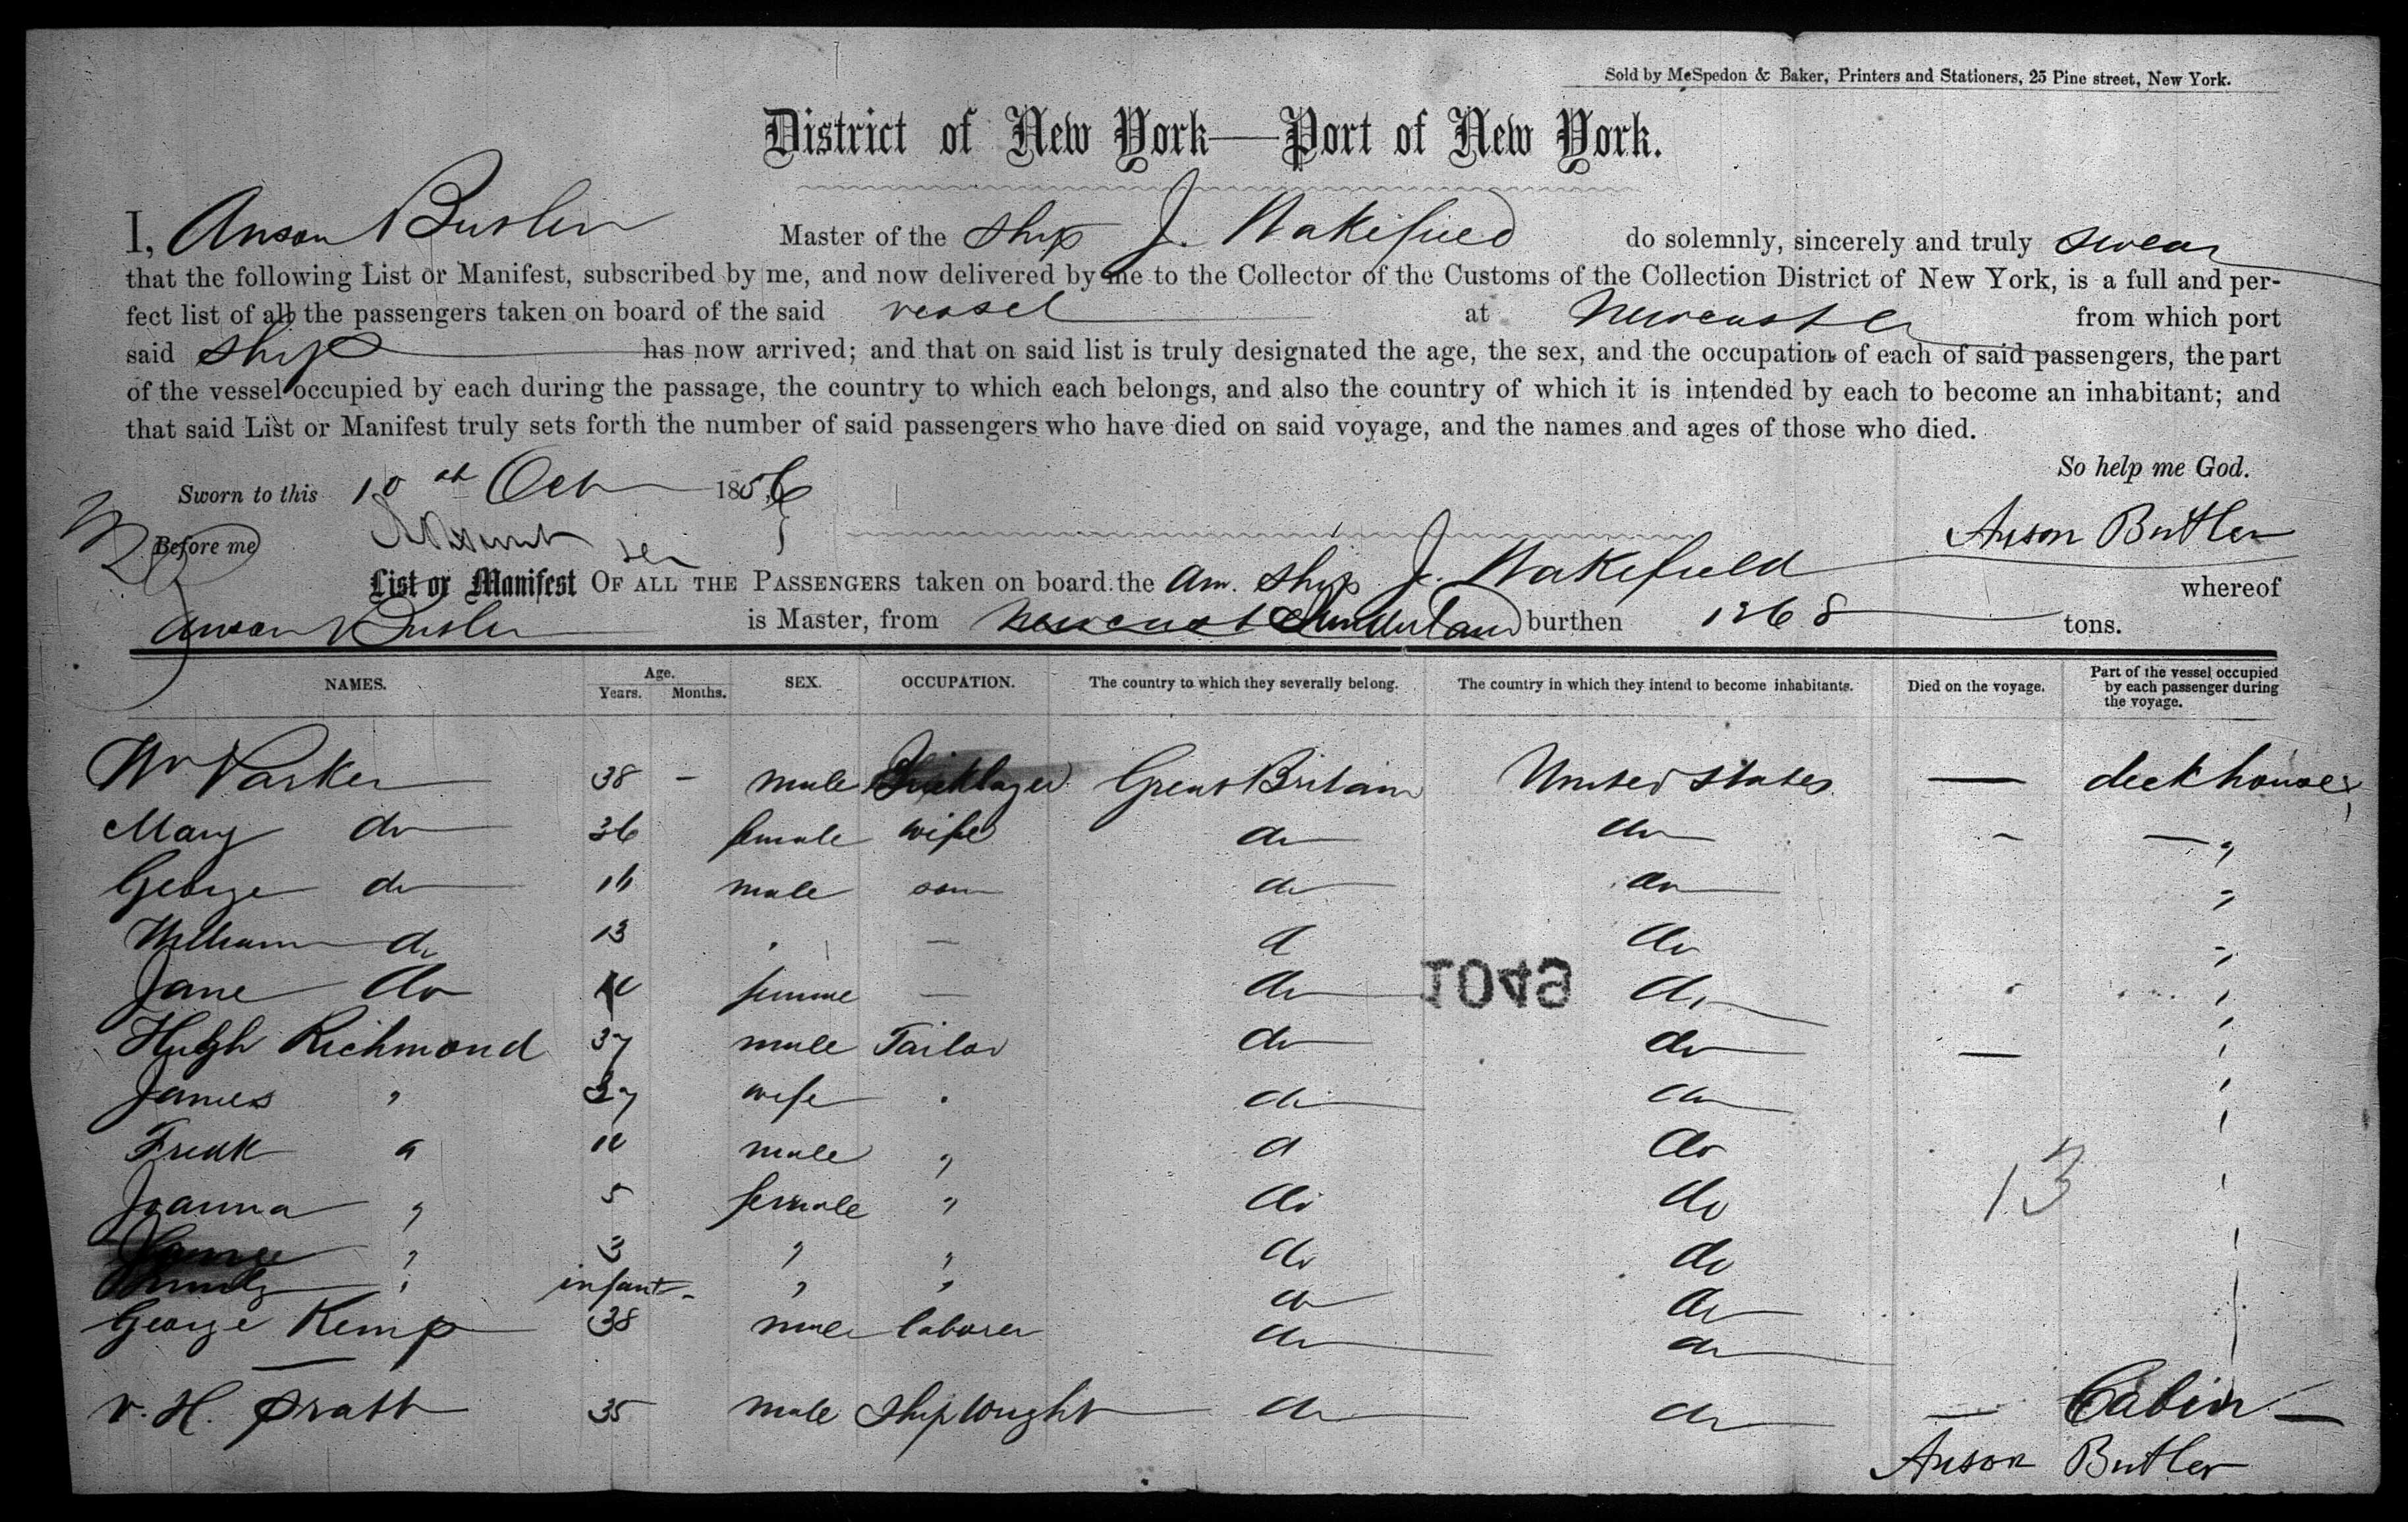 Sold by McSpedon & Baker, Printers and Stationers, 25 Pine street, New York.
District of New York—Port of New York.
I, Anson Butler Master of the Ship J. Wakefield do solemnly, sincerely and truly swear
that the following List or Manifest, subscribed by me, and now delivered by me to the Collector of the Customs of the Collection District of New York, is a full and per-
fect list of all the passengers taken on board of the said vessel at Newcastle from which port
said Ship has now arrived; and that on said list is truly designated the age, the sex, and the occupation of each of said passengers, the part
of the vessel occupied by each during the passage, the country to which each belongs, and also the country of which it is intended by each to become an inhabitant; and
that said List or Manifest truly sets forth the number of said passengers who have died on said voyage, and the names and ages of those who died.
So help me God.
Sworn to this 10th Oct 1856
Before me
Anson Butler
List or Manifest OF ALL THE PASSENGERS taken on board the Am. Ship J. Wakefield whereof
Anson Butler is Master, from Sunderland burthen 1268 tons.
NAMES. Age. Years. Months. SEX. OCCUPATION. The country to which they severally belong. The country in which they intend to become inhabitants. Died on the voyage. Part of the vessel occupied by each passenger during the voyage.
Wm Parker 38 - male Great Britain United States — deck house
Mary do 36 female wife do do - — "
George do male son do do "
William do 13 " — d do "
Jane do — do do "
1049
Hugh Richmond 37 male Tailor do do — "
James " 37 wife " do do "
Fredk " male " d do "
Joanna " 5 female " do do "
13
" 3 " " do do "
" infant - " " do do
George Kemp 38 male laborer do do
V. H. Pratt 35 male Shipwright do do — Cabin —
Anson Butler